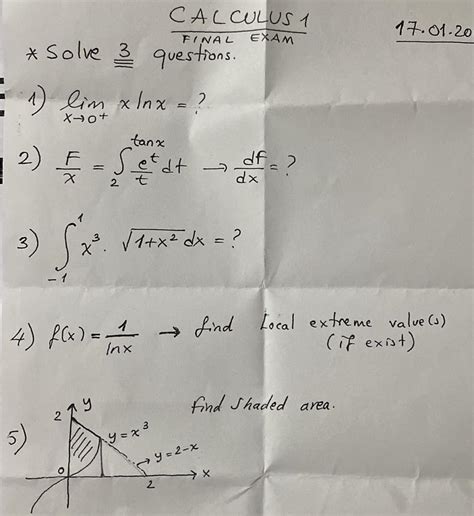 CALCULUS 1
FINAL EXAM
17.01.20
* Solve 3 questions.
1) lim x→0⁺ x ln x = ?
2) F/x = ∫₂^tanx e^t/t dt → df/dx = ?
3) ∫₋₁¹ x³ · √(1+x²) dx = ?
4) f(x) = 1/ln x → find Local extreme value(s)
(if exist)
find shaded area.
5) 2 y y = x³ y = 2-x 0 2 x